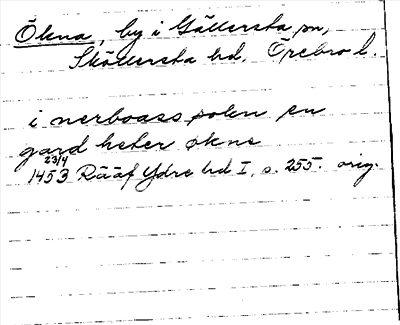 Ökna, by i Gällersta sn,
Sköllersta hd, Örebro l.
i nerboass solen en
gard heter økne
23/4
1453 Rääf Ydre hd I, s. 255. orig.